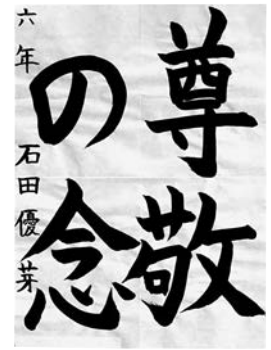 尊敬
の念
六年 石田優芽